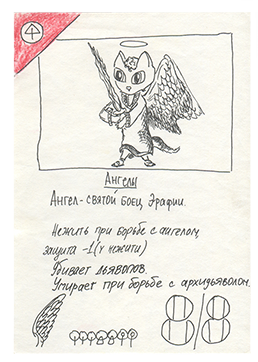 Ангелы
Ангел-святой боец Эрафии.
Нежить при борьбе с ангелом,
защита -1 (у нежити)
Убивает дьяволов.
Умирает при борьбе с архидьяволом
8/8